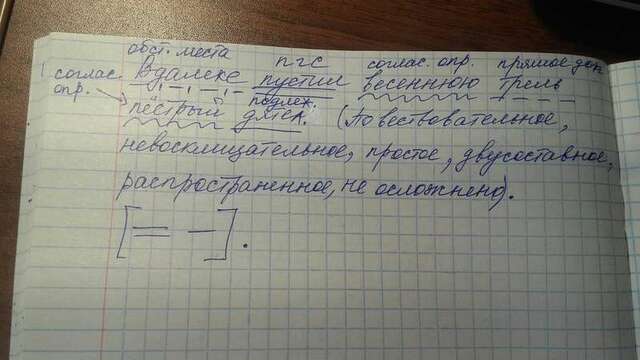 обст. места ПГС соглас. опр. прямое доп.
соглас. опр. Вдалеке пустил весеннюю трель
подлеж.
пёстрый дятел. (Повествовательное,
невосклицательное, простое, двусоставное,
распространенное, не осложнено).
[= –].